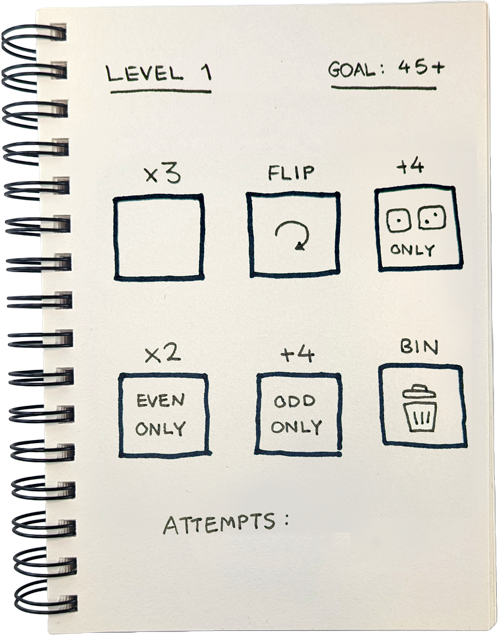 LEVEL 1 GOAL: 45+
x3 FLIP +4
ONLY
x2 +4 BIN
EVEN ONLY
ODD ONLY
ATTEMPTS: